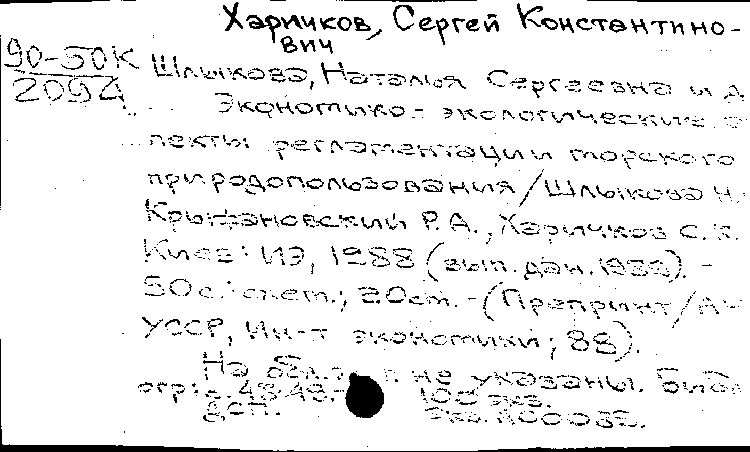 Харичков, Сергей Константино-
вич
90-50К
2094
Шлыкова, Наталья Сергеевна и д
Экономико-экологические
пекты регламентации морского
природопользования/Шлыкова Н.
Крыжановский Р.А., Харичков С.К.
Киев: ИЭ, 1988 (вып. дан. 1989). -
50с.: схем.; 20см. - (Препринт/АН
УССР, Ин-т экономики; 88).
На обл. не указаны. Библ
огр.: с. 48-49. 100 экз.
Экз. N00082.